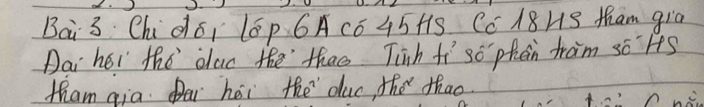 Bài 3: Chi đội lớp 6A có 45HS Có 18HS tham gia
Đại hội thể dục thể thao Tính tỉ số phần trăm số HS
tham gia Đại hội thể dục, thể thao.